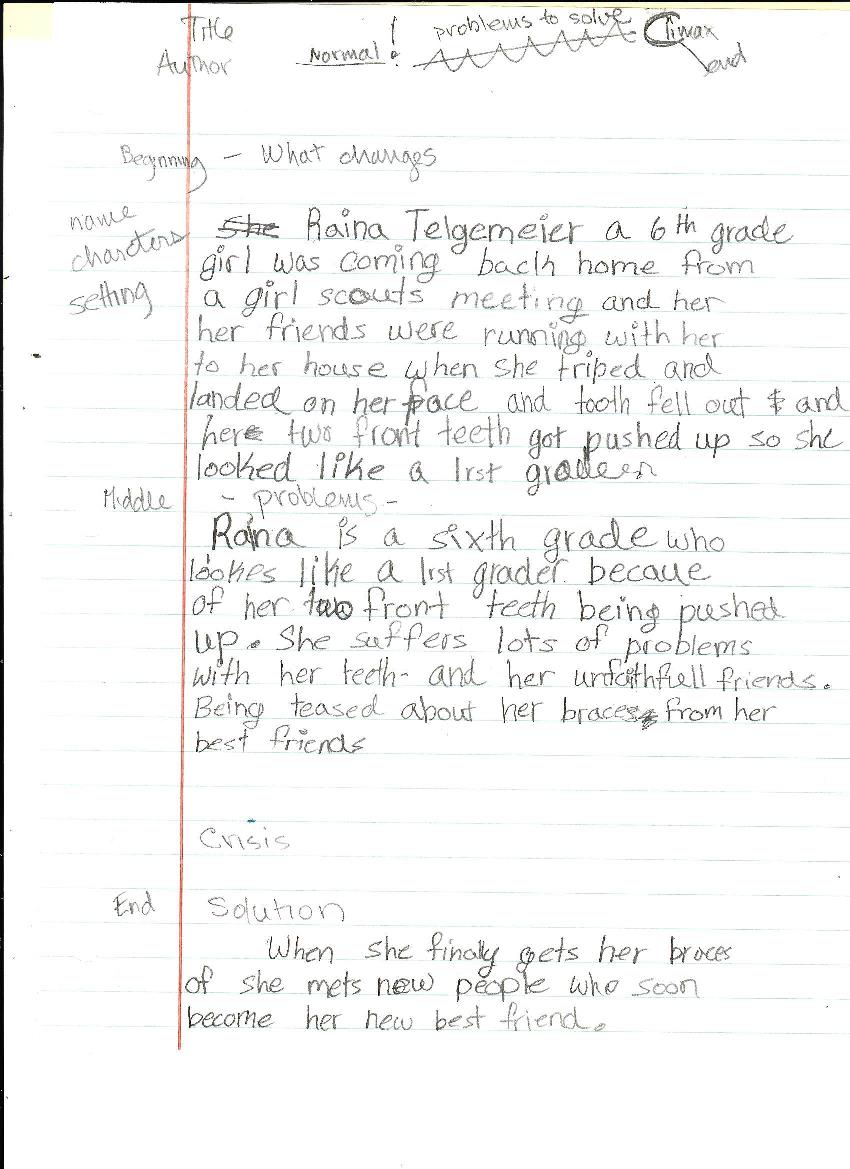 Title
Author
Normal !
problems to solve
Climax
end
Beginning - What changes
name
charcters
setting
She Raina Telgemeier a 6th grade
girl was coming back home from
a girl scouts meeting and her
her friends were running with her
to her house when she triped and
landed on her face and tooth fell out & and
here two front teeth got pushed up so she
looked like a 1rst grader
Middle - problems -
Raina is a sixth grade who
lookes like a 1rst grader becaue
of her two front teeth being pushed
up. She suffers lots of problems
with her teeth- and her unfaithfull friends.
Being teased about her braces from her
best friends
Crisis
End Solution
When she finaly gets her braces
of she mets new people who soon
become her new best friend.